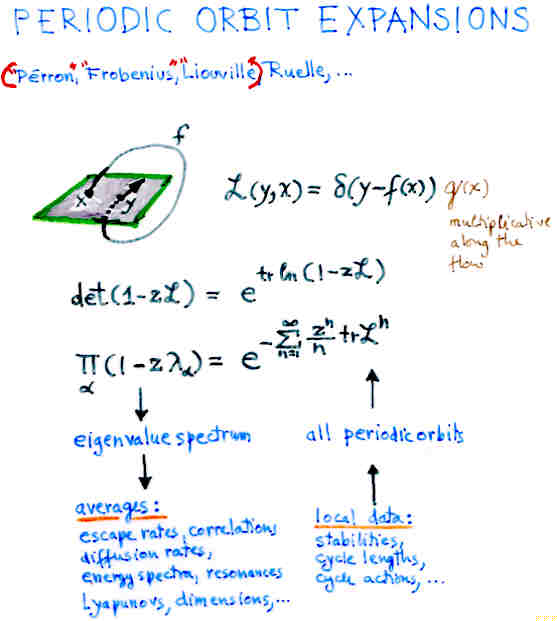 PERIODIC ORBIT EXPANSIONS
("Perron", "Frobenius", "Liouville") Ruelle, ...
f
x y
ℒ(y,x) = δ(y-f(x)) g(x)
multiplicative
along the
flow
det(1-zℒ) = e^{tr ln(1-zℒ)}
∏_α (1-zλ_α) = e^{-∑_{n=1}^{∞} z^n/n tr ℒ^n}
eigenvalue spectrum
all periodic orbits
averages:
escape rates, correlations
diffusion rates,
energy spectra, resonances
Lyapunovs, dimensions, ...
local data:
stabilities,
cycle lengths,
cycle actions, ...